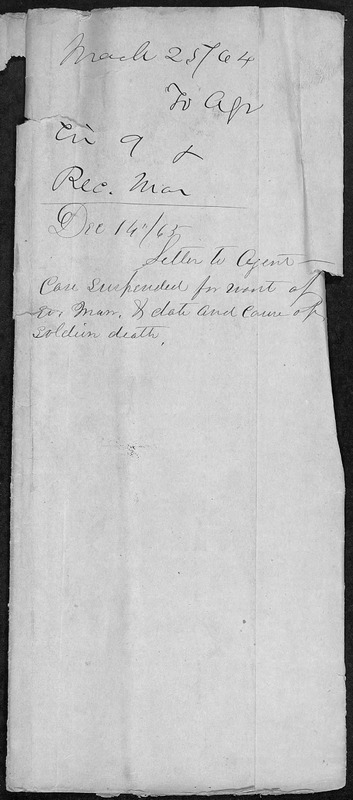 March 25/64
To Agt
Ev 9 &
Rec. Mar
Dec 14"/65
Letter to Agent —
Case suspended for want of
ev, Marr. & date and Cause of
soldiers death.